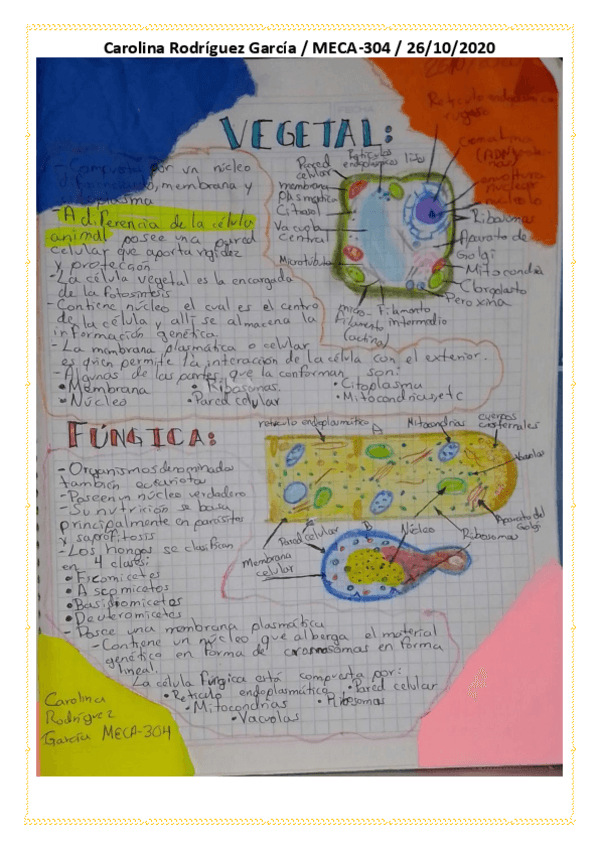 Carolina Rodríguez García / MECA-304 / 26/10/2020
VEGETAL:
- Compuesta por un núcleo
diferenciado, membrana y
- A diferencia de la célula
animal posee una pared
celular que aporta rigidez
y protección
- La célula vegetal es la encargada
de la fotosíntesis
- Contiene núcleo el cual es el centro
de la célula y allí se almacena la
información genética.
- La membrana plasmática o celular
es quien permite la interacción de la célula con el exterior.
- Algunas de las partes que la conforman son:
• Membrana • Ribosomas. • Citoplasma
• Núcleo • Pared celular • Mitocondrias, etc
Pared
celular
membrana
plasmática
Citosol
Vacuola
central
Microtúbulo
Retículo endoplasmático
rugoso
envoltura
nuclear
nucleolo
Ribosomas
Aparato de
Golgi
Mitocondria
Cloroplasto
Peroxina
Filamento
intermedio
micro-
filamento
(actina)
FÚNGICA:
- Organismos denominados
también eucariotas
- Poseen núcleo verdadero
- Su nutrición se basa
principalmente en parásitos
y saprófitosis
- Los hongos se clasifican
en 4 clases:
• Ficomicetes
• Ascomicetos
• Basidiomicetos
• Deuteromicetos
- Posee una membrana plasmática
- Contiene un núcleo que alberga el material
genético en forma de cromosomas en forma
lineal.
La célula fúngica está compuesta por:
• Retículo endoplasmático • Pared celular
- Mitocondrias • Ribosomas
• Vacuolas
retículo endoplasmático
A
Mitocondrias
cuerpos
Vacuolas
Aparato del
Golgi
Ribosomas
Núcleo
B
Pared celular
Membrana
celular
Carolina
Rodríguez
García MECA-304